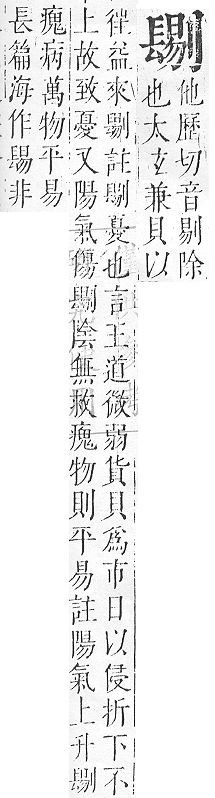 他歷切音剔除
也太玄兼貝以
徃益來註憂也言王道微弱貨貝爲市日以侵折下不
上故致憂又陽氣傷陰無救瘣物則平易註陽氣上升
瘣病萬物平易
長篇海作非